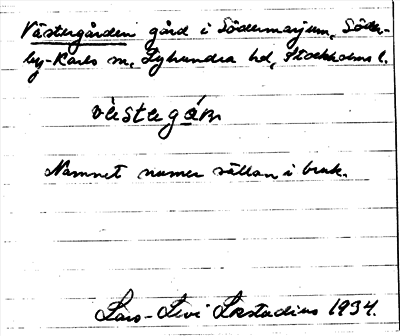 Västergården gård i Södermarjum, Söder-
by-Karls sn, Lyhundra hd, Stockholms l.
västegán
Namnet numer sällan i bruk.
Lars-Levi Læstadius 1934.